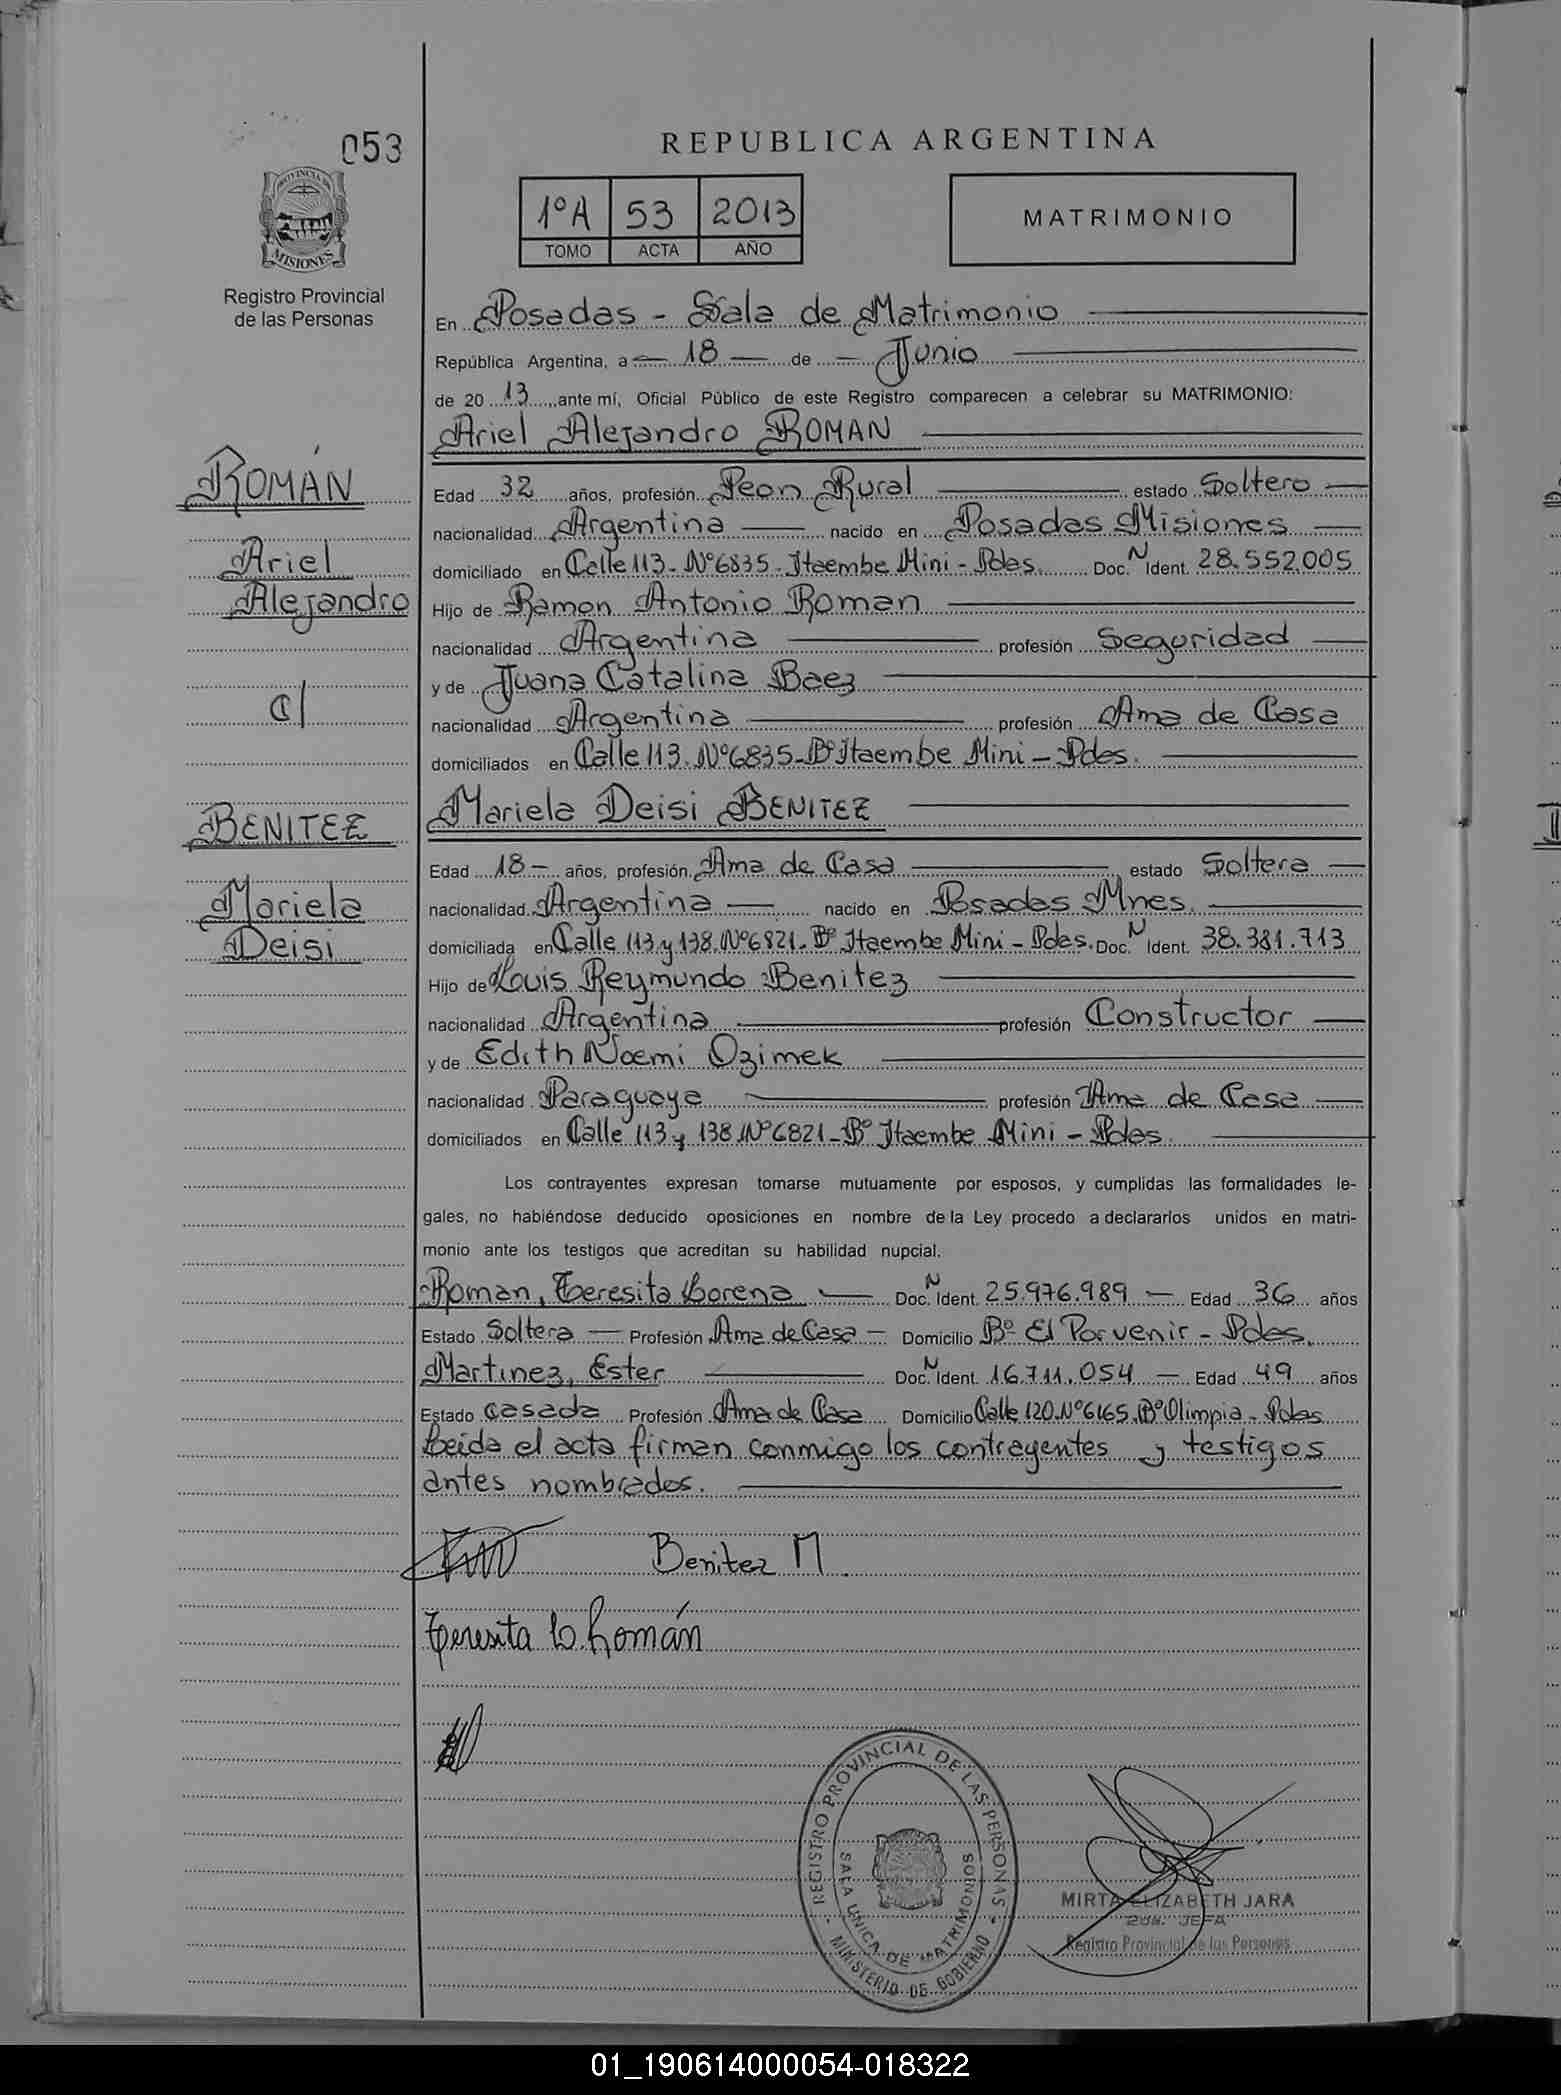 053
REPUBLICA ARGENTINA
1ºA 53 2013
TOMO ACTA AÑO
MATRIMONIO
PROVINCIA DE
MISIONES
Registro Provincial
de las Personas
En Posadas - Sala de Matrimonio
República Argentina, a 18 de Junio
de 20 13 ante mí, Oficial Público de este Registro comparecen a celebrar su MATRIMONIO:
Ariel Alejandro ROMAN
ROMÁN
Ariel
Alejandro
c/
BENITEZ
Mariela
Deisi
Edad 32 años, profesión Peon Rural estado Soltero
nacionalidad Argentina nacido en Posadas Misiones
domiciliado en Calle 113 - Nº 6835 - Itaembe Mini - Pdas. Doc. N Ident. 28.552.005
Hijo de Ramon Antonio Roman
nacionalidad Argentina profesión Seguridad
y de Juana Catalina Baez
nacionalidad Argentina profesión Ama de Casa
domiciliados en Calle 113. Nº 6835 - Bº Itaembe Mini - Pdas.
Mariela Deisi BENITEZ
Edad 18 - años, profesión Ama de Casa estado Soltera
nacionalidad Argentina nacido en Posadas Mnes.
domiciliada en Calle 113 y 138. Nº 6821 - Bº Itaembe Mini - Pdas. Doc. N Ident. 38.381.713
Hijo de Luis Reymundo Benitez
nacionalidad Argentina profesión Constructor
y de Edith Noemi Ozimek
nacionalidad Paraguaya profesión Ama de Casa
domiciliados en Calle 113 y 138 Nº 6821 - Bº Itaembe Mini - Pdas.
Los contrayentes expresan tomarse mutuamente por esposos, y cumplidas las formalidades le-
gales, no habiéndose deducido oposiciones en nombre de la Ley procedo a declararlos unidos en matri-
monio ante los testigos que acreditan su habilidad nupcial.
Roman, Teresita Lorena Doc. N Ident. 25.976.989 Edad 36 años
Estado Soltera Profesión Ama de Casa Domicilio Bº El Porvenir - Pdas.
Martinez, Ester Doc. N Ident. 16.711.054 Edad 49 años
Estado casada Profesión Ama de Casa Domicilio Calle 120. Nº 6165. Bº Olimpia - Pdas
Leida el acta firman conmigo los contrayentes y testigos
antes nombrados.
Benitez M.
Teresita L. Román
REGISTRO PROVINCIAL DE LAS PERSONAS
SALA UNICA DE MATRIMONIOS
MINISTERIO DE GOBIERNO
MIRTA ELIZABETH JARA
SUB. JEFA
Registro Provincial de las Personas
01_190614000054-018322